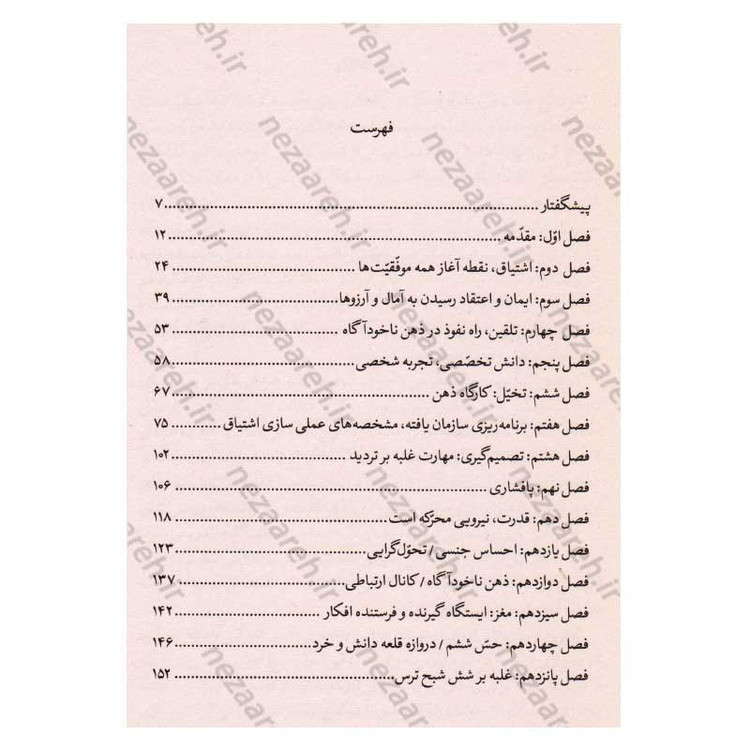 فهرست
پیشگفتار ........ ۷
فصل اوّل: مقدّمه ........ ۱۲
فصل دوم: اشتیاق، نقطه آغاز همه موفّقیّت‌ها ........ ۲۴
فصل سوم: ایمان و اعتقاد رسیدن به آمال و آرزوها ........ ۳۹
فصل چهارم: تلقین، راه نفوذ در ذهن ناخودآگاه ........ ۵۳
فصل پنجم: دانش تخصّصی، تجربه شخصی ........ ۵۸
فصل ششم: تخیّل: کارگاه ذهن ........ ۶۷
فصل هفتم: برنامه‌ریزی سازمان یافته، مشخصه‌های عملی سازی اشتیاق ........ ۷۵
فصل هشتم: تصمیم‌گیری: مهارت غلبه بر تردید ........ ۱۰۲
فصل نهم: پافشاری ........ ۱۰۶
فصل دهم: قدرت، نیرویی محرّکه است ........ ۱۱۸
فصل یازدهم: احساس جنسی / تحوّل‌گرایی ........ ۱۲۳
فصل دوازدهم: ذهن ناخودآگاه / کانال ارتباطی ........ ۱۳۷
فصل سیزدهم: مغز: ایستگاه گیرنده و فرستنده افکار ........ ۱۴۲
فصل چهاردهم: حسّ ششم / دروازه قلعه دانش و خرد ........ ۱۴۶
فصل پانزدهم: غلبه بر شش شبح ترس ........ ۱۵۲
nezaareh.ir